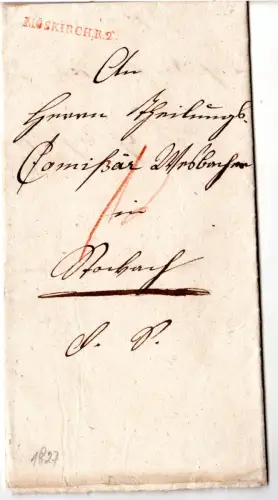 MÖSKIRCH, R.2.
An
Herrn Theilungs-
Comißär Wesbacher
in
Stockach
d. S.
1827